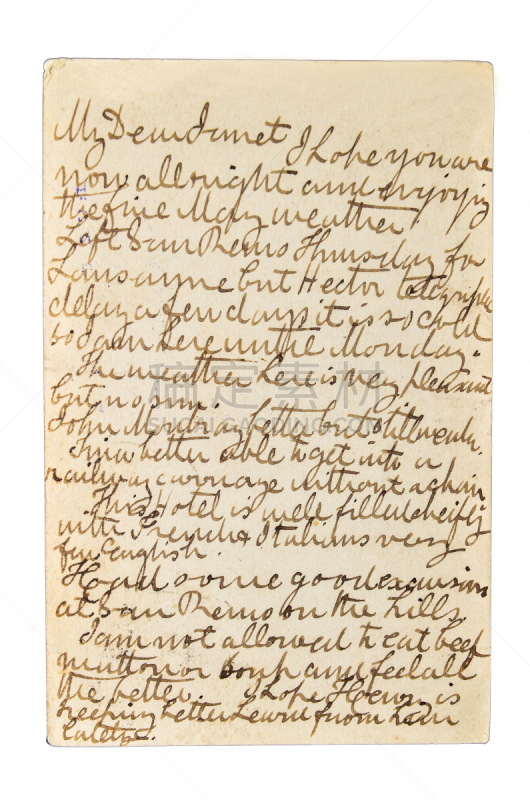 My Dear Janet I hope you are
now all right and enjoying
the fine May weather
Left San Remo Thursday for
Lausanne but Hector telegraphed
delay a few days it is so cold
so I am here until Monday.
The weather here is very pleasant
but no sun.
John Murray better but still weak.
Tina better able to get into a
railway carriage without a chair
This Hotel is well filled chiefly
with French & Italians very
few English.
Had some good excursions
at San Remo on the hills
I am not allowed to eat beef
mutton or soup and feel all
the better. I hope is
keeping better heard from him
lately.
稿定素材